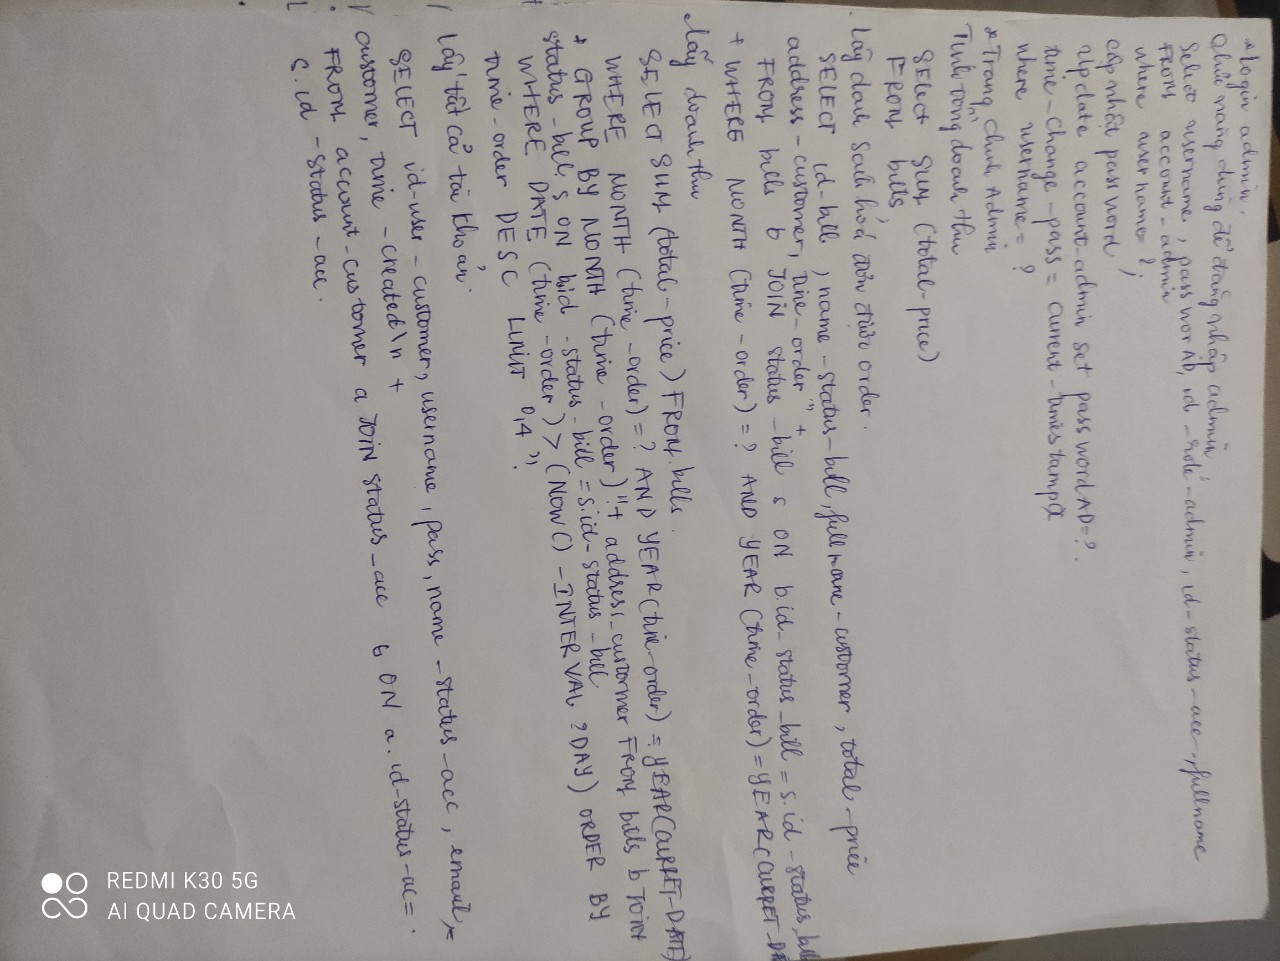 *Login admin.
Chức năng dùng để đăng nhập admin,
Select username, passworAD, id-role-admin, id-status-acc, fullname
FROM account-admin
where username= ?;
cập nhật password
Update account-admin set passwordAD=?.
time-change-pass = current-timestamp()
where username= ?
*Trang chính Admin
Tính tổng doanh thu
SElect SUM (total-price)
FROM bills,
. Lấy danh sách hoá đơn được order.
SELECT id-bill, name-status-bill, fullname-customer, total-price
address-customer, time-order "+
FROM bills b JOIN status_bill s ON b.id_status_bill = s.id-status_bill
+ WHERE MONTH (time-order) = ? AND YEAR (time-order) = YEAR(CURRET-DA
.lấy doanh thu
SELECT SUM (total-price) FROM bills.
WHERE MONTH (time-order) = ? AND YEAR(time-order) = YEAR(CURRET-DATE)
+ GROUP BY MONTH (time-order)"+ address_custormer FROM bills b JOIN
status-bill s ON b.id-status-bill = s.id-status-bill
WHERE DATE (time-order) > (NOW() - INTERVAL ?DAY) ORDER BY
time-order DESC LIMIT 0,4"!
Lấy tất cả tài khoản.
SELECT id-user-customer, username, pass, name-status-acc, email,
customer, time-created\n +
FROM account-customer a JOIN status_acc b ON a.id-status-ac= .
S.id-status-acc.
REDMI K30 5G
AI QUAD CAMERA